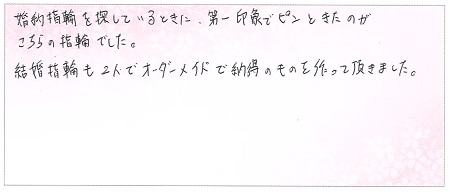 婚約指輪を探しているときに、第一印象でピンときたのが
こちらの指輪でした。
結婚指輪も2人でオーダーメイドで納得のものを作って頂きました。